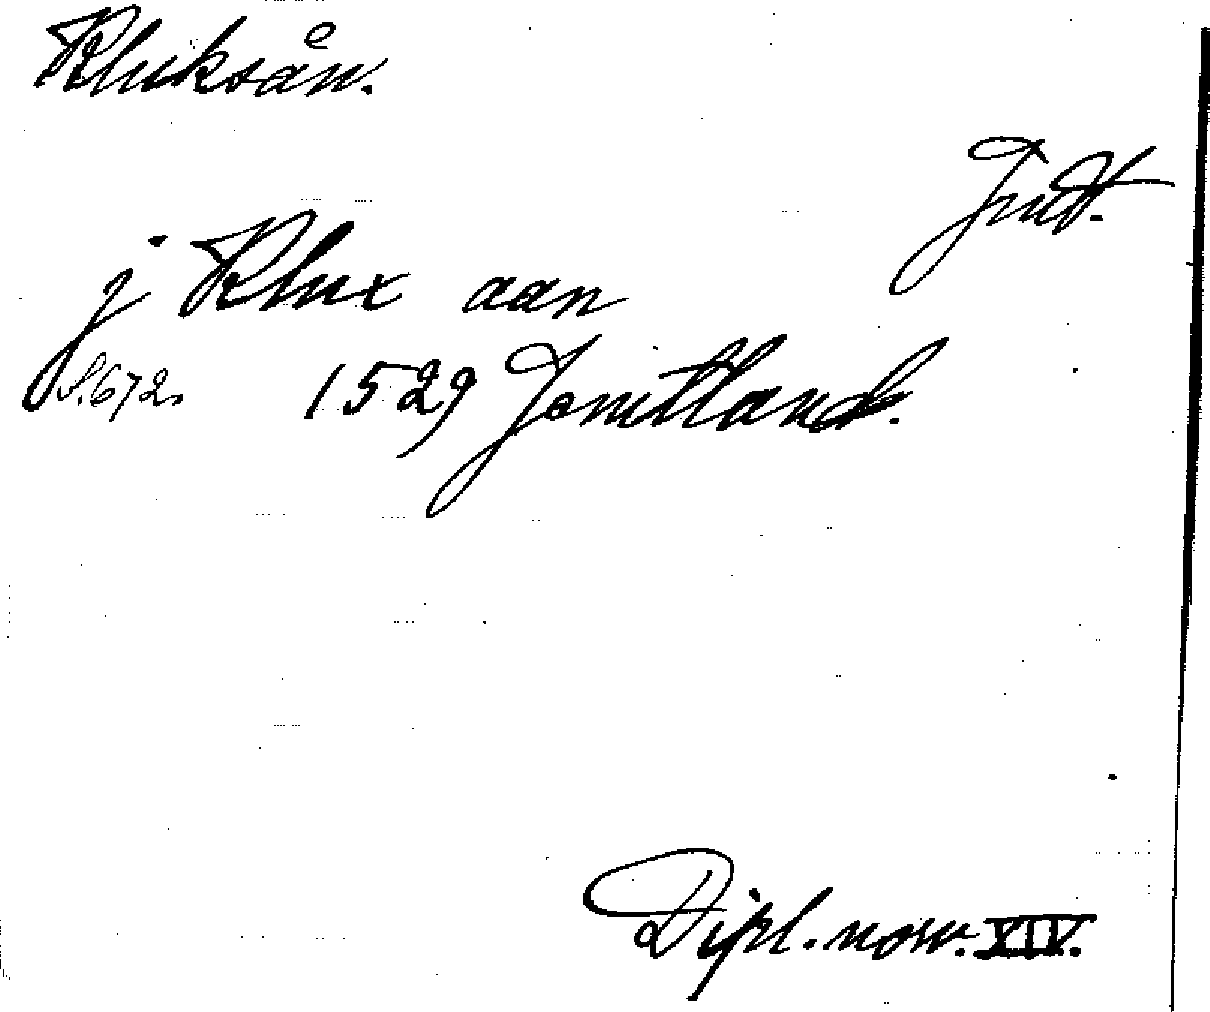 Kluksån.
j Klux aan
S. 672. 1529 Jemtland.
Dipl. norv. XIV.